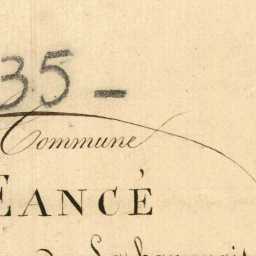 35 -
Commune
EANCÉ